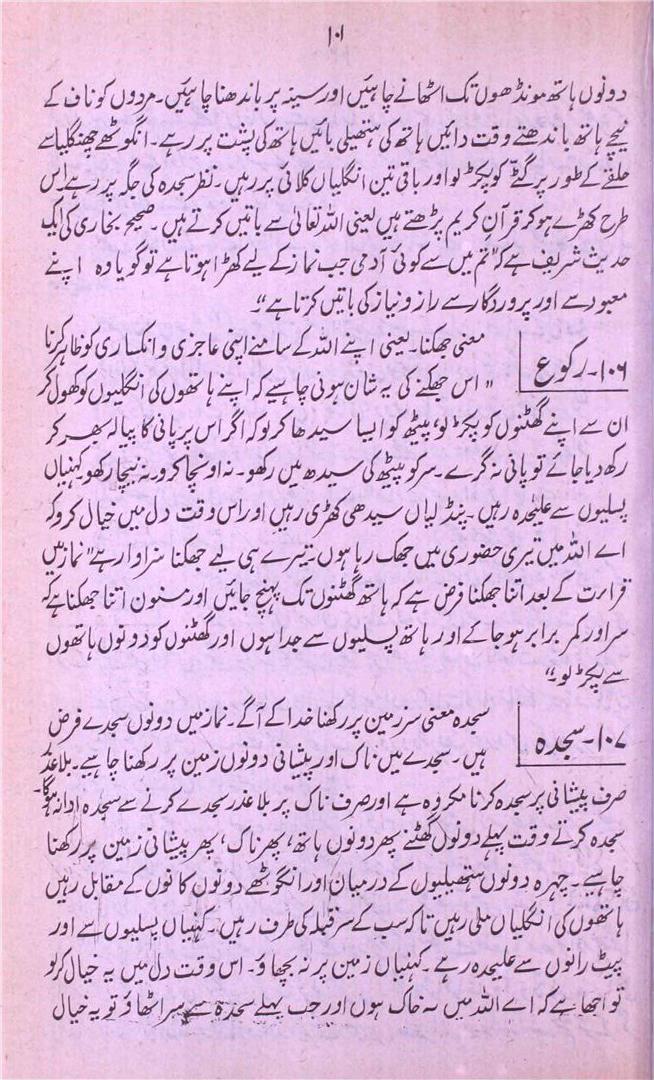 ۱۰۱
دونوں ہاتھ مونڈھوں تک اٹھانے چاہئیں اور سینہ پر باندھنا چاہئیں۔ مردوں کو ناف کے
نیچے ہاتھ باندھتے وقت دائیں ہاتھ کی ہتھیلی بائیں ہاتھ کی پشت پر رہے۔ انگوٹھے چھنگلیا سے
حلقے کے طور پر گٹے کو پکڑ لو اور باقی تین انگلیاں کلائی پر رہیں۔ نظر سجدہ کی جگہ پر رہے۔ اس
طرح کھڑے ہو کر قرآن کریم پڑھتے ہیں یعنی اللہ تعالیٰ سے باتیں کرتے ہیں۔ صحیح بخاری کی ایک
حدیث شریف ہے کہ "تم میں سے کوئی آدمی جب نماز کے لیے کھڑا ہوتا ہے تو گویا وہ اپنے
معبود سے اور پروردگار سے راز و نیاز کی باتیں کرتا ہے"۔
۱۰۶۔ رکوع
معنی جھکنا۔ یعنی اپنے اللہ کے سامنے اپنی عاجزی و انکساری کو ظاہر کرنا
"اس جھکنے کی یہ شان ہونی چاہیے کہ اپنے ہاتھوں کی انگلیوں کو کھول کر
ان سے اپنے گھٹنوں کو پکڑ لو، پیٹھ کو ایسا سیدھا کر لو کہ اگر اس پر پانی کا پیالہ بھر کر
رکھ دیا جائے تو پانی نہ گرے۔ سر کو پیٹھ کی سیدھ میں رکھو۔ نہ اونچا کرو۔ نہ نیچا رکھو۔ کہنیاں
پسلیوں سے علیٰحدہ رہیں۔ پنڈلیاں سیدھی کھڑی رہیں اور اس وقت دل میں خیال کرو کہ
اے اللہ میں تیری حضوری میں جھک رہا ہوں۔ تیرے ہی لیے جھکنا سزاوار ہے" نماز میں
قراءت کے بعد اتنا جھکنا فرض ہے کہ ہاتھ گھٹنوں تک پہنچ جائیں اور مسنون اتنا جھکنا ہے کہ
سر اور کمر برابر ہو جاکے اور ہاتھ پسلیوں سے جدا ہوں اور گھٹنوں کو دونوں ہاتھوں
سے پکڑ لو۔"
۱۰۷۔ سجدہ
سجدہ معنی سر زمین پر رکھنا خدا کے آگے۔ نماز میں دونوں سجدے فرض
ہیں۔ سجدے میں ناک اور پیشانی دونوں زمین پر رکھنا چاہیے۔ بلا عذر
صرف پیشانی پر سجدہ کرنا مکروہ ہے اور صرف ناک پر بلا عذر سجدے کرنے سے سجدہ ادا نہ ہوگا۔
سجدہ کرتے وقت پہلے دونوں گھٹنے پھر دونوں ہاتھ، پھر ناک، پھر پیشانی زمین پر رکھنا
چاہیے۔ چہرہ دونوں ہتھیلیوں کے درمیان اور انگوٹھے دونوں کانوں کے مقابل رہیں
ہاتھوں کی انگلیاں ملی رہیں تاکہ سب کے سر قبلہ کی طرف رہیں۔ کہنیاں پسلیوں سے اور
پیٹ رانوں سے علیحدہ رہے۔ کہنیاں زمین پر نہ بچھاؤ۔ اس وقت دل میں یہ خیال کر لو
تو اچھا ہے کہ اے اللہ میں یہ خاک ہوں اور جب پہلے سجدہ سے سر اٹھاؤ تو یہ خیال